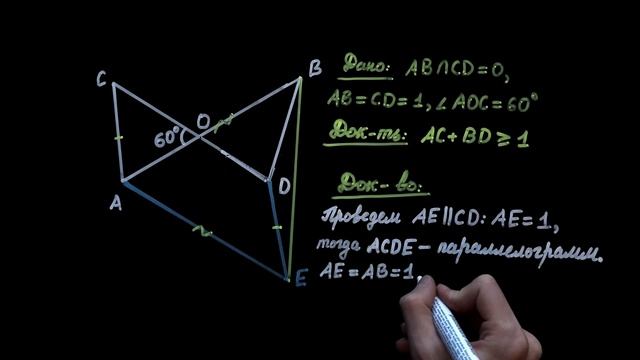 C
B
Дано: AB∩CD=O,
AB=CD=1, ∠AOC=60°
O
60°
Док-ть: AC+BD⩾1
A
D
Док-во:
Проведем AE||CD: AE=1,
тогда ACDE – параллелограмм.
AE=AB=1,
E